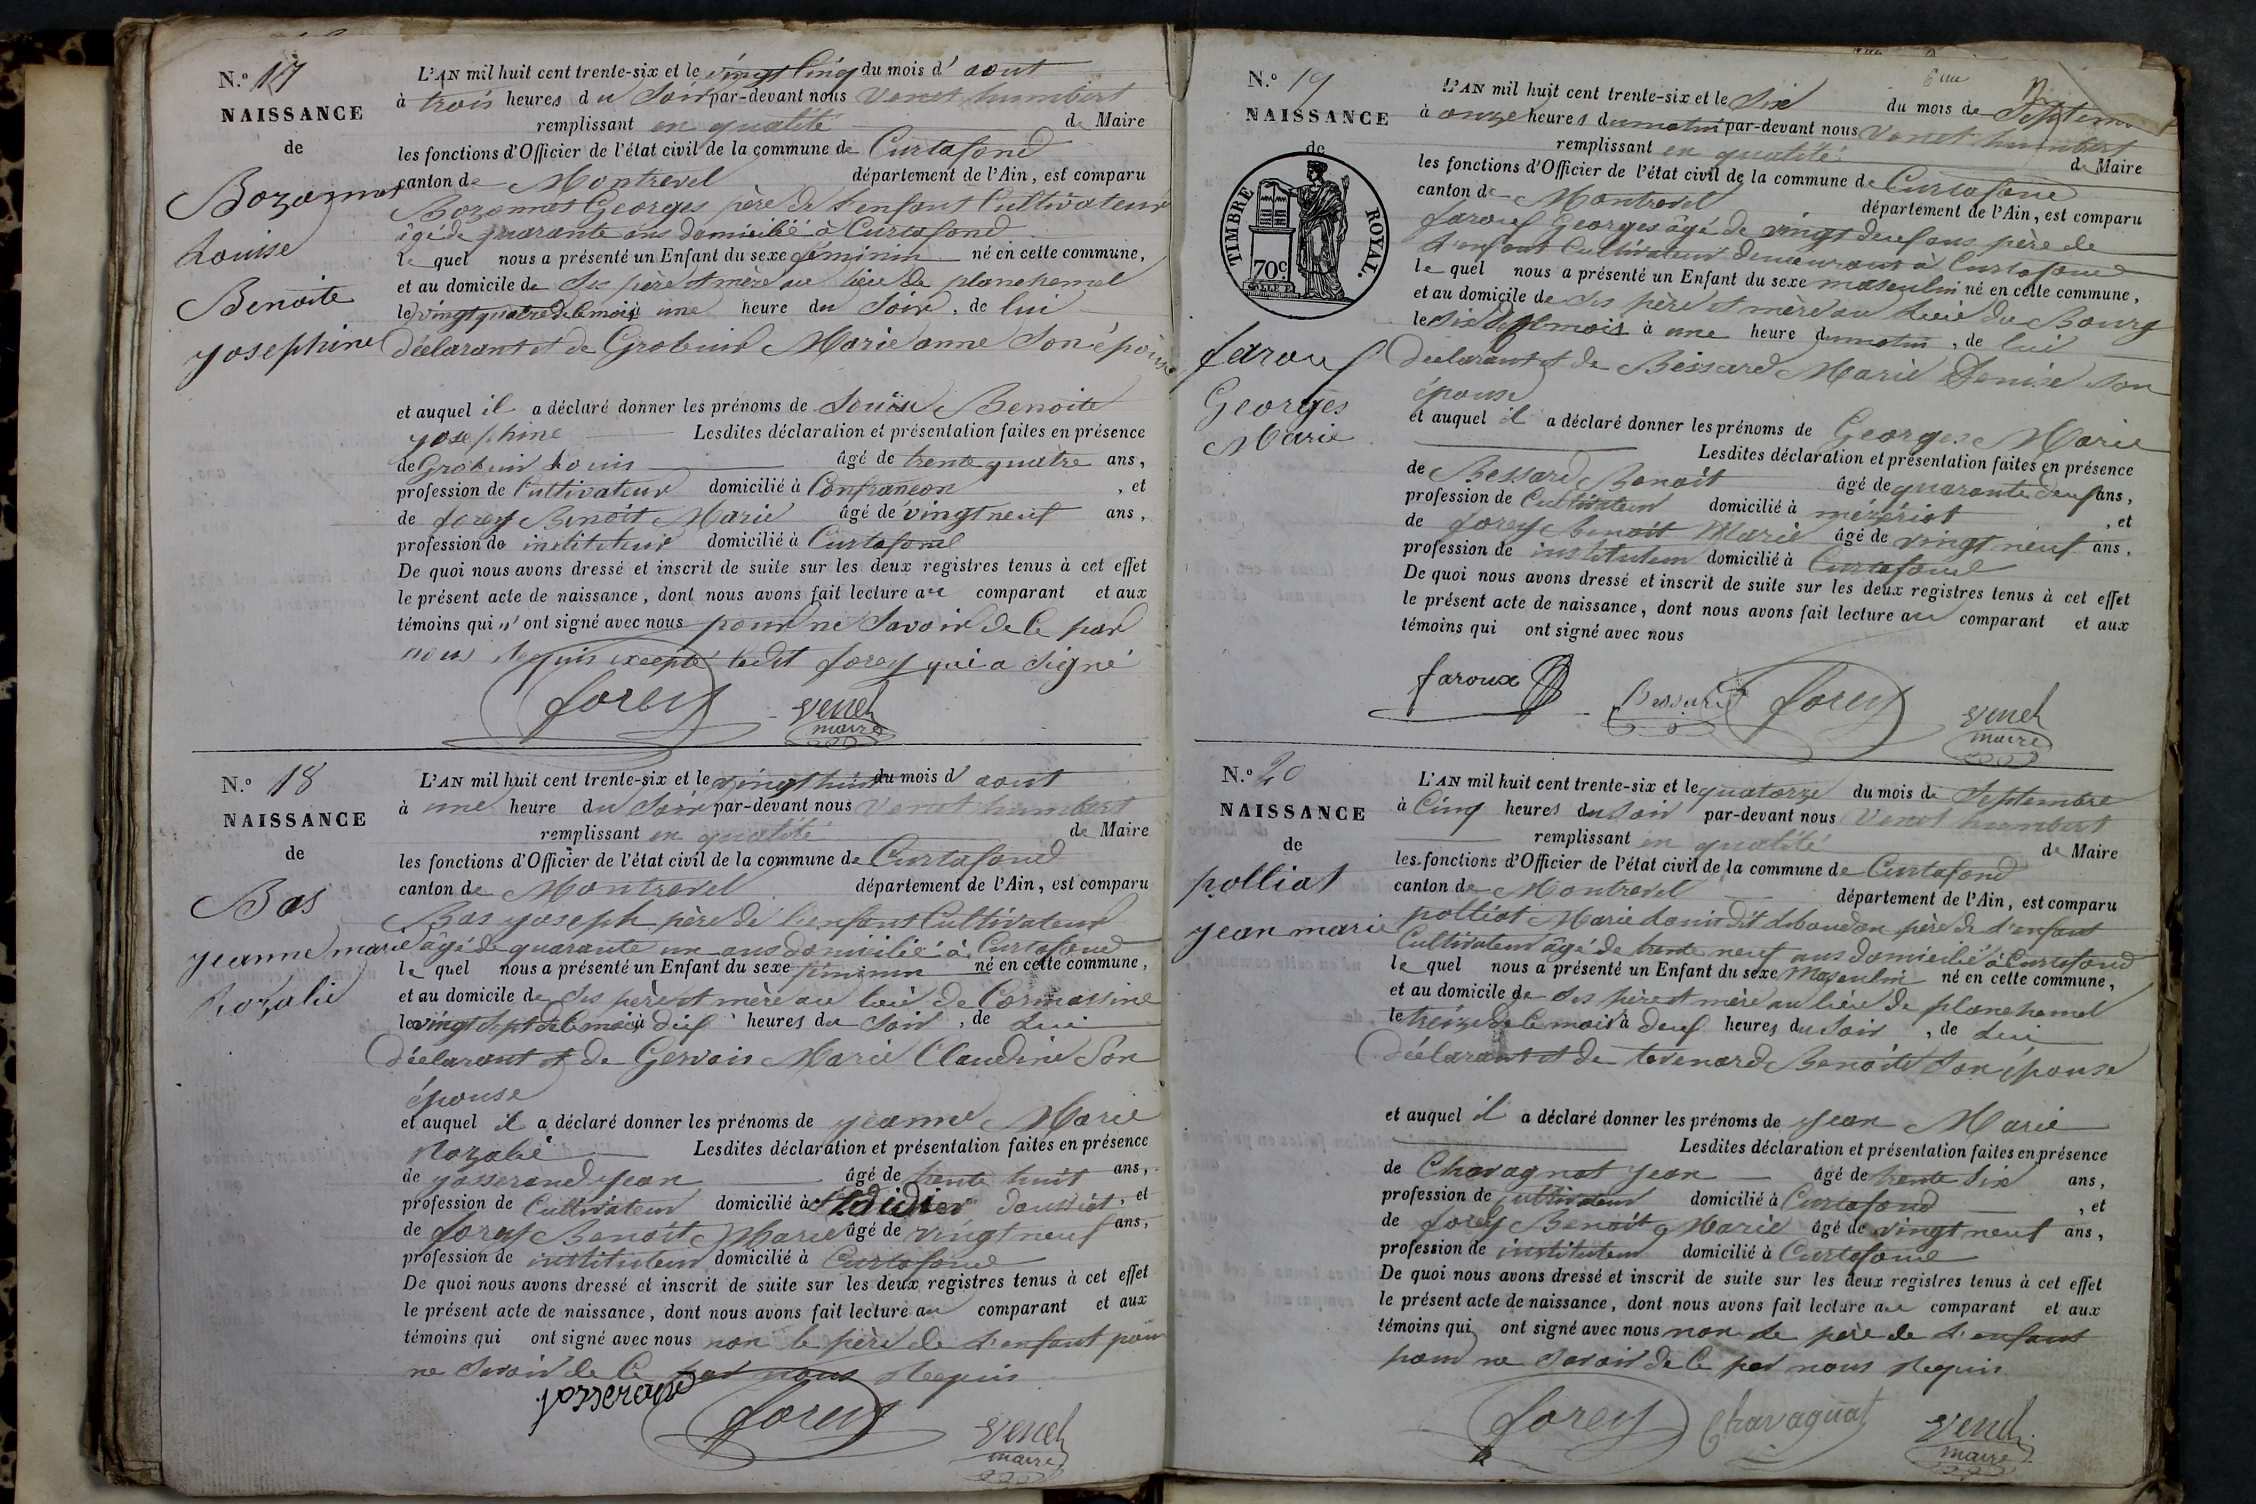 N.º 17
NAISSANCE
de
Bozonnet
Louise
Benoite
yosephine
L'AN mil huit cent trente-six et le vingt Cinq du mois d' aout
à trois heures du Soir par-devant nous Venet humbert
remplissant en qualité de Maire
les fonctions d'Officier de l'état civil de la commune de Curtafond
canton de Montrevel département de l'Ain, est comparu
Bozonnet Georges père de l'enfant Cultivateur
âgé de quarante ans domicilié à Curtafond
le quel nous a présenté un Enfant du sexe féminin né en cette commune,
et au domicile de Ses père et mère au lieu de planchemel
le vingt quatre de ce mois à une heure du Soir, de lui
Déclarant et de Grobuis Marie anne Son épouse
et auquel il a déclaré donner les prénoms de Louise Benoite
yosephine Lesdites déclaration et présentation faites en présence
de Louis âgé de trente quatre ans,
profession de Cultivateur domicilié à Confrancon, et
de forey Benoit Marie âgé de vingt neuf ans,
profession de instituteur domicilié à Curtafond
De quoi nous avons dressé et inscrit de suite sur les deux registres tenus à cet effet
le présent acte de naissance, dont nous avons fait lecture au comparant et aux
témoins qui n'ont signé avec nous pour ne Savoir de Ce par
nous Requis excepté ledit forey qui a Signé
forey
venet
maire
N.º 18
NAISSANCE
de
Bas
yeanne marie
Rozalie
L'AN mil huit cent trente-six et le vingt huit du mois d' aout
à une heure du Soir par-devant nous Venet humbert
remplissant en qualité de Maire
les fonctions d'Officier de l'état civil de la commune de Curtafond
canton de Montrevel département de l'Ain, est comparu
Bas yoseph père de l'enfant Cultivateur
âgé de quarante un ans domicilié à Curtafond
le quel nous a présenté un Enfant du sexe féminin né en cette commune,
et au domicile de Ses père et mère au lieu de Cormassine
le vingt Sept de ce mois à dix heures du Soir, de Lui
Déclarant et de Gervais Marie Claudine Son
épouse
et auquel il a déclaré donner les prénoms de yeanne Marie
Rozalie Lesdites déclaration et présentation faites en présence
de yosserand yean âgé de trente huit ans,
profession de Cultivateur domicilié à St didier doussiat, et
de forey Benoit Marie âgé de vingt neuf ans,
profession de instituteur domicilié à Curtafond
De quoi nous avons dressé et inscrit de suite sur les deux registres tenus à cet effet
le présent acte de naissance, dont nous avons fait lecture au comparant et aux
témoins qui ont signé avec nous non le père de L'enfant pour
ne Savoir de Ce par nous Requis
josserand
forey
venet
maire
N.º 19
NAISSANCE
de
TIMBRE ROYAL.
70c.
farouf
Georges
Marie
L'AN mil huit cent trente-six et le Six du mois de Septem
à onze heures du matin par-devant nous Venet humbert
remplissant en qualité de Maire
les fonctions d'Officier de l'état civil de la commune de Curtafond
canton de Montrevel département de l'Ain, est comparu
farouf Georges âgé de vingt deuf ans père de
L'enfant Cultivateur demeurant à Curtafond
le quel nous a présenté un Enfant du sexe masculin né en cette commune,
et au domicile de Ses père et mère au Lieu du Bourg
le Six de ce mois à une heure du matin, de lui
Déclarant et de Bessard Marie Denise Son
épouse
et auquel il a déclaré donner les prénoms de Georges Marie
Lesdites déclaration et présentation faites en présence
de Bessard Benoit âgé de quarante deuf ans,
profession de Cultivateur domicilié à mézériat, et
de forey benoit Marie âgé de vingt neuf ans,
profession de instituteur domicilié à Curtafond
De quoi nous avons dressé et inscrit de suite sur les deux registres tenus à cet effet
le présent acte de naissance, dont nous avons fait lecture au comparant et aux
témoins qui ont signé avec nous
faroux
Bessard
forey
venet
maire
N.º 20
NAISSANCE
de
polliat
yean marie
L'AN mil huit cent trente-six et le quatorze du mois de Septembre
à Cinq heures du Soir par-devant nous Venet humbert
remplissant en qualité de Maire
les fonctions d'Officier de l'état civil de la commune de Curtafond
canton de Montrevel département de l'Ain, est comparu
polliat Marie Louis dit père de L'enfant
Cultivateur âgé de trente neuf ans domicilié à Curtafond
le quel nous a présenté un Enfant du sexe Masculin né en cette commune,
et au domicile de Ses père et mère au lieu de planchemel
le treize de ce mois à deuf heures du Soir, de Lui
Déclarant et de tevenard Benoite Son épouse
et auquel il a déclaré donner les prénoms de yean Marie
Lesdites déclaration et présentation faites en présence
de Chavagnat yean âgé de trente Six ans,
profession de Cultivateur domicilié à Curtafond, et
de forey Benoit Marie âgé de vingt neuf ans,
profession de instituteur domicilié à Curtafond
De quoi nous avons dressé et inscrit de suite sur les deux registres tenus à cet effet
le présent acte de naissance, dont nous avons fait lecture au comparant et aux
témoins qui ont signé avec nous non le père de L'enfant
pour ne Savoir de Ce par nous Requis
forey
Chavagnat
venet
maire